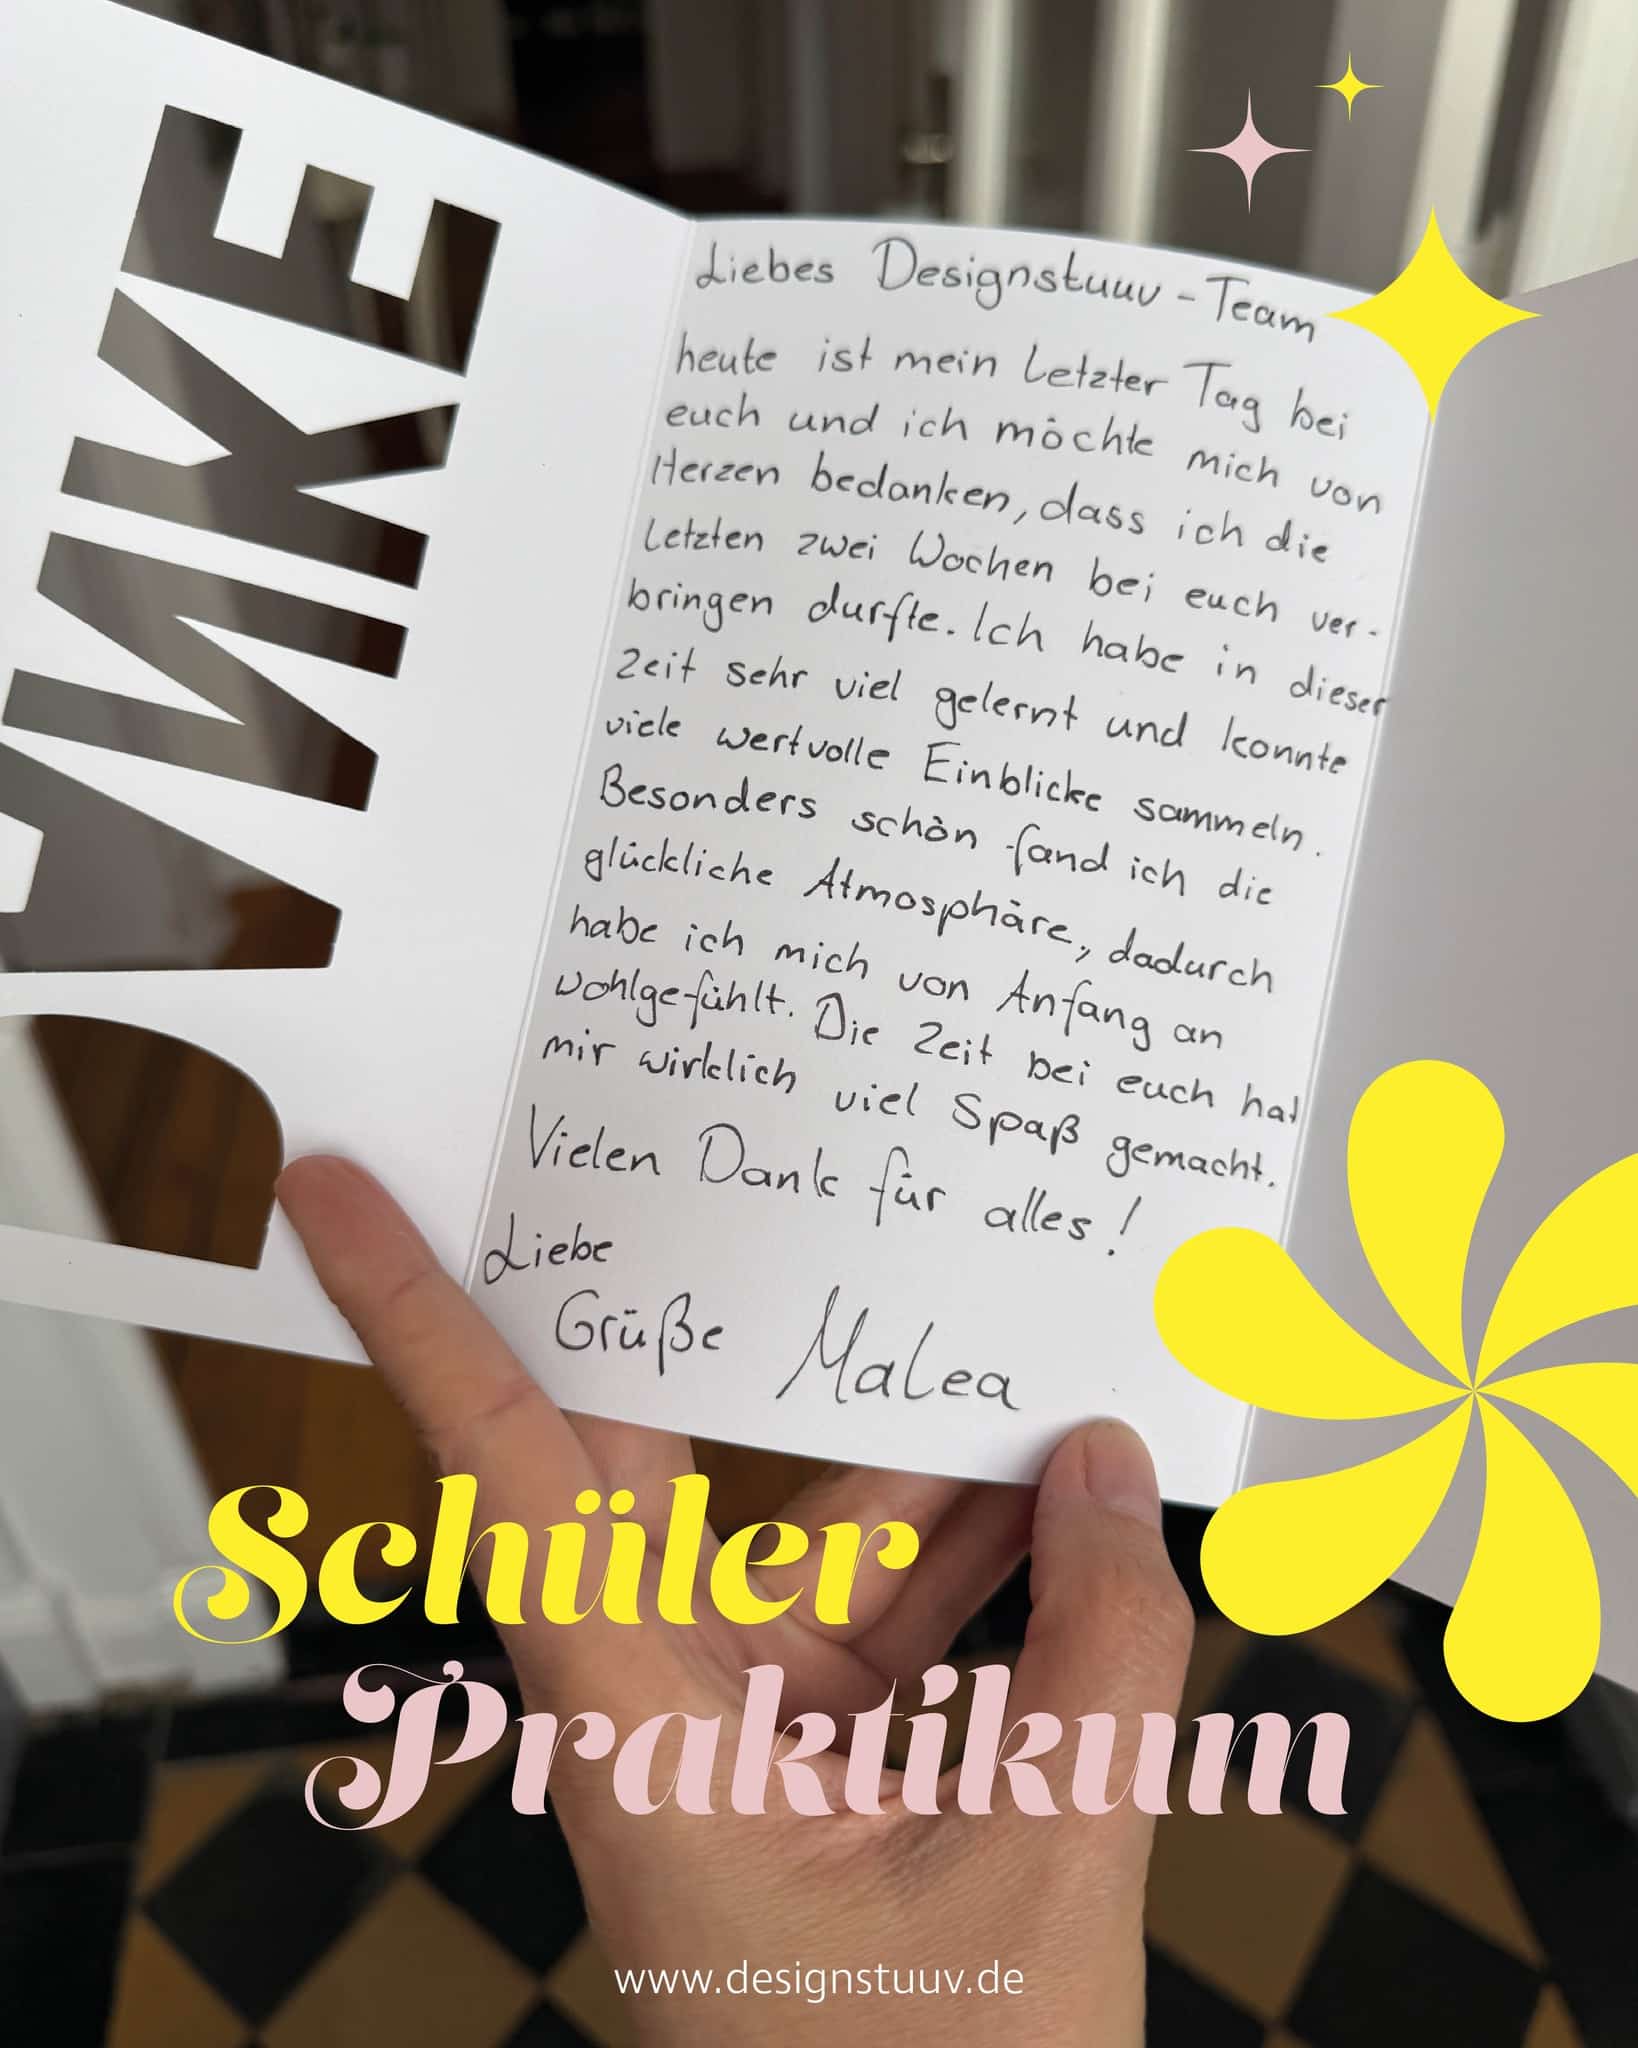 DANKE
Liebes Designstuuv-Team
heute ist mein letzter Tag bei
euch und ich möchte mich von
Herzen bedanken, dass ich die
letzten zwei Wochen bei euch ver-
bringen durfte. Ich habe in dieser
Zeit sehr viel gelernt und konnte
viele wertvolle Einblicke sammeln.
Besonders schön fand ich die
glückliche Atmosphäre, dadurch
habe ich mich von Anfang an
wohlgefühlt. Die Zeit bei euch hat
mir wirklich viel Spaß gemacht.
Vielen Dank für alles!
Liebe
Grüße Malea
Schüler
Praktikum
www.designstuuv.de